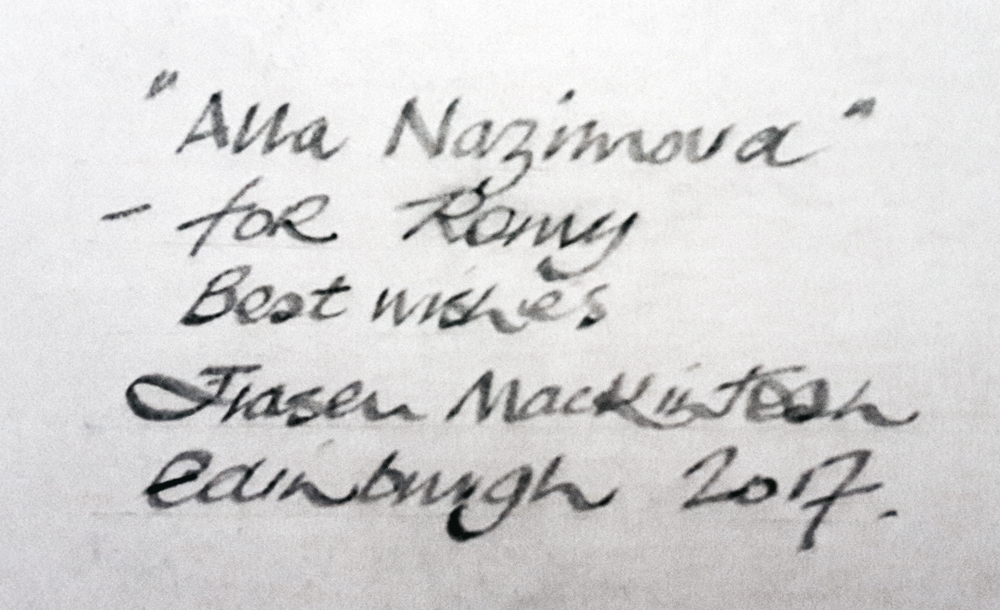 "Alla Nazimova"
- for Romy
Best wishes
Fraser MacKintosh
Edinburgh 2017.